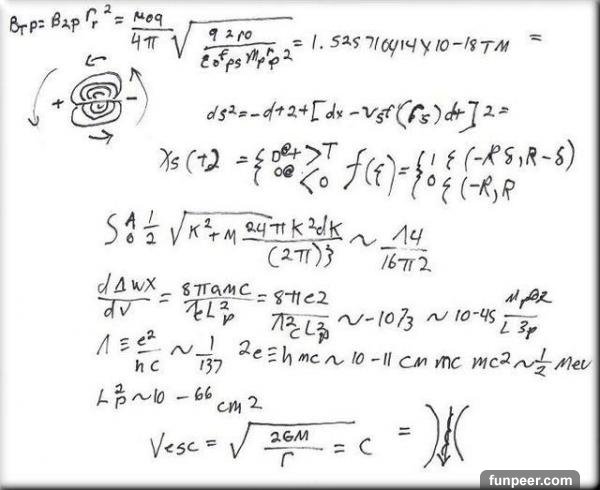 BTP = B2P rr² = μ0q/4π √(q 2r0 / ε0 fps Mp r p 2) = 1.525710414 x 10-18 TM =
← + - →
ds² = -d+2+[dx - vsf(rs)dt]2 =
Xs(+2 = { 0@+ >T 0@ <0 f(ξ) = { 1 ξ (-R δ, R - δ) 0 ξ (-R, R
S A 0 1/2 √K² + M 2 4πk²dk / (2π)3 ~ Λ4 / 16π2
dΔwx/dv = 8παmc/ƛL²p = 8πe2/ƛ²c L²p ~ -1073 ~ 10-45 MpB2 / L 3p
Λ ≡ e²/hc ~ 1/137 2e ≡ h mc ~ 10 - 11 cm mc mc2 ~ 1/2 Mev
L²p ~ 10 - 66 cm2
Vesc = √(2GM/r) = C =
funpeer.com